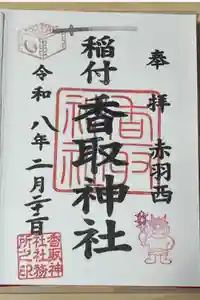 奉拝
赤羽西
稲付
香取神社
令和八年二月二十二日
香取神社
香取神
社社務
所之印